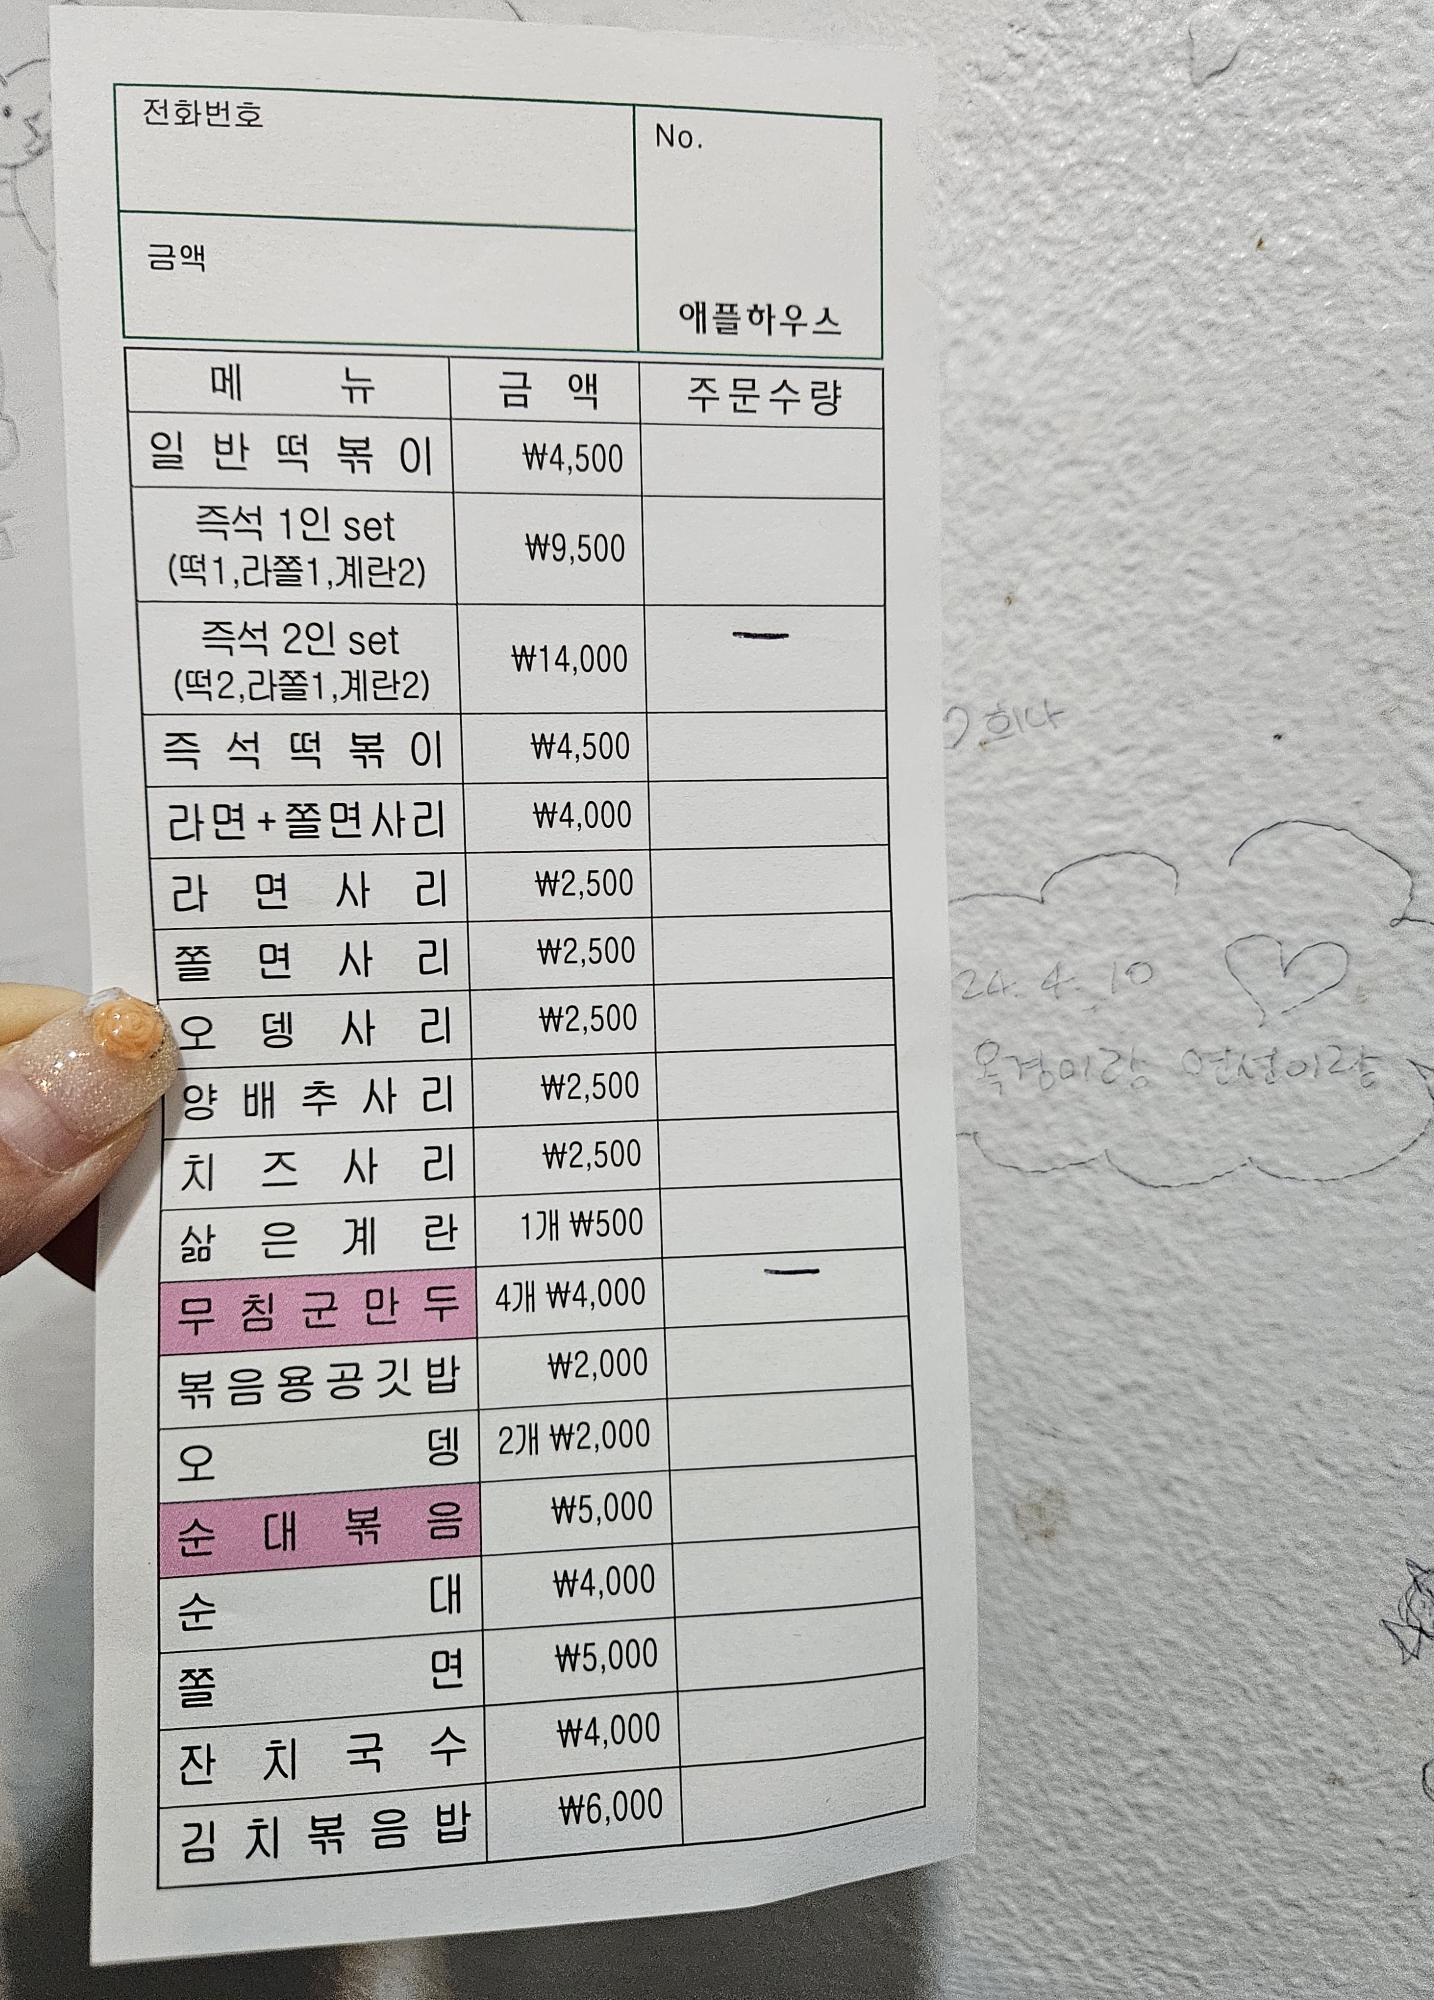 전화번호
No.
금액
애플하우스
메뉴 금액 주문수량
일반떡볶이 ₩4,500
즉석 1인 set
(떡1,라쫄1,계란2) ₩9,500
즉석 2인 set
(떡2,라쫄1,계란2) ₩14,000 一
즉석떡볶이 ₩4,500
라면+쫄면사리 ₩4,000
라면사리 ₩2,500
쫄면사리 ₩2,500
오뎅사리 ₩2,500
양배추사리 ₩2,500
치즈사리 ₩2,500
삶은계란 1개 ₩500
무침군만두 4개 ₩4,000 一
볶음용공깃밥 ₩2,000
오뎅 2개 ₩2,000
순대볶음 ₩5,000
순대 ₩4,000
쫄면 ₩5,000
잔치국수 ₩4,000
김치볶음밥 ₩6,000
희나
24. 4. 10
옥경이랑 연선이랑